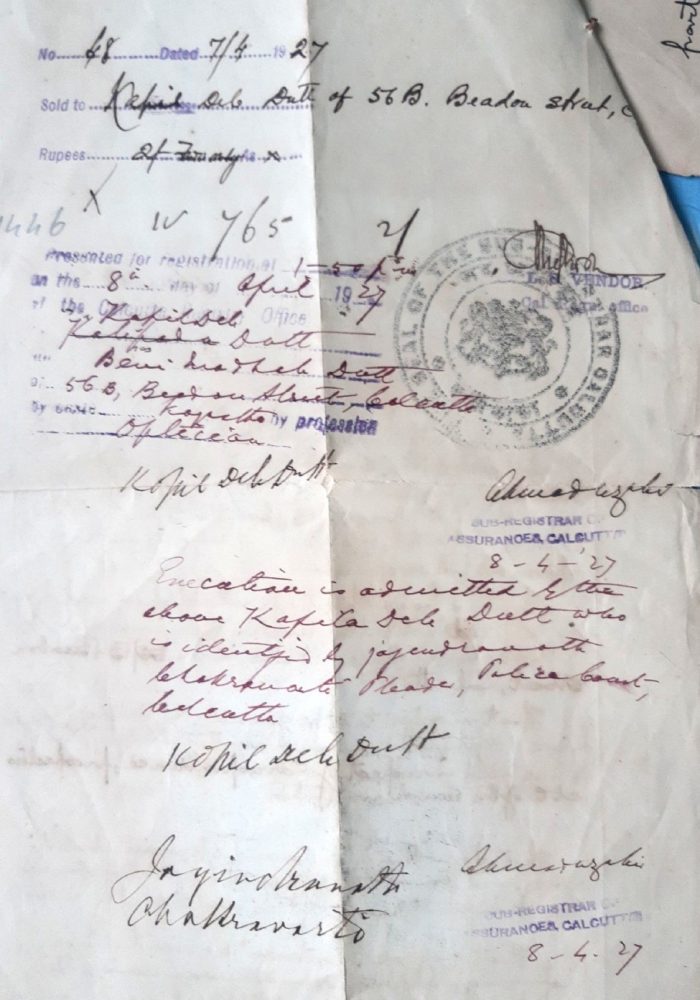 No. 48 Dated 7/4 1927
Sold to Kapil Deb Dutt of 56 B. Beadon street, C
Rupees 2/- x
x
1446
IV 765 2/
Presented for registration at 1-50 P.m
on the 8th day of April 1927
at the Calcutta Office
Kapil Deb
Dutt
Beni Madhab Dutt
of 56 B, Beadon Street, Calcutta
by caste Kayastha by profession
Optician
L. S. VENDOR
office
SEAL OF THE SUB-REGISTRAR CALCUTTA
Kopil Deb Dutt
SUB-REGISTRAR OF
ASSURANCES, CALCUTTA
8-4-'27
Execution is admitted by the
above Kapila Deb Dutt who
is identified by Jogendranath
Chakravarti Pleader, Police Court,
Calcutta
Kopil Deb Dutt
Jogindranath
Chakravarti
SUB-REGISTRAR OF
ASSURANCES, CALCUTTA
8-4-27